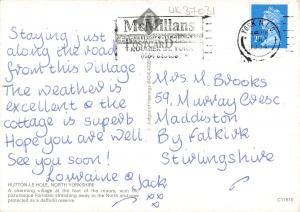 UK37031
McMillans
POSTCARD
YORK
Staying just
along the road
from this village
The weather is
excellent & the
cottage is superb.
Hope you are well.
See you soon!
Lourraine & Jack
xx
Mrs. M Brooks
59, Murray Cresc.
Maddiston
By Falkirk
Stirlingshire
HUTTON-LE-HOLE, NORTH YORKSHIRE
A charming village at the foot of the moors, with the
picturesque Farndale stretching away to the North and now
protected as a daffodil reserve
C11610